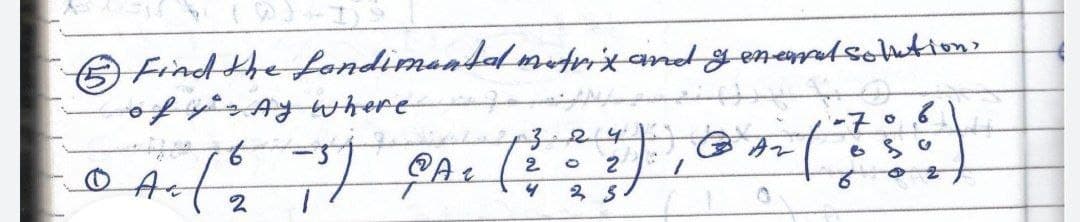 ⑤ Find the fondimental matrix and general solution,
of y° = Ay where
① A = (6 -3; 2 1) ② A = (3 2 4; 2 0 2; 4 2 3), ③ A = (-7 0 6; 0 5 0; 6 0 2)